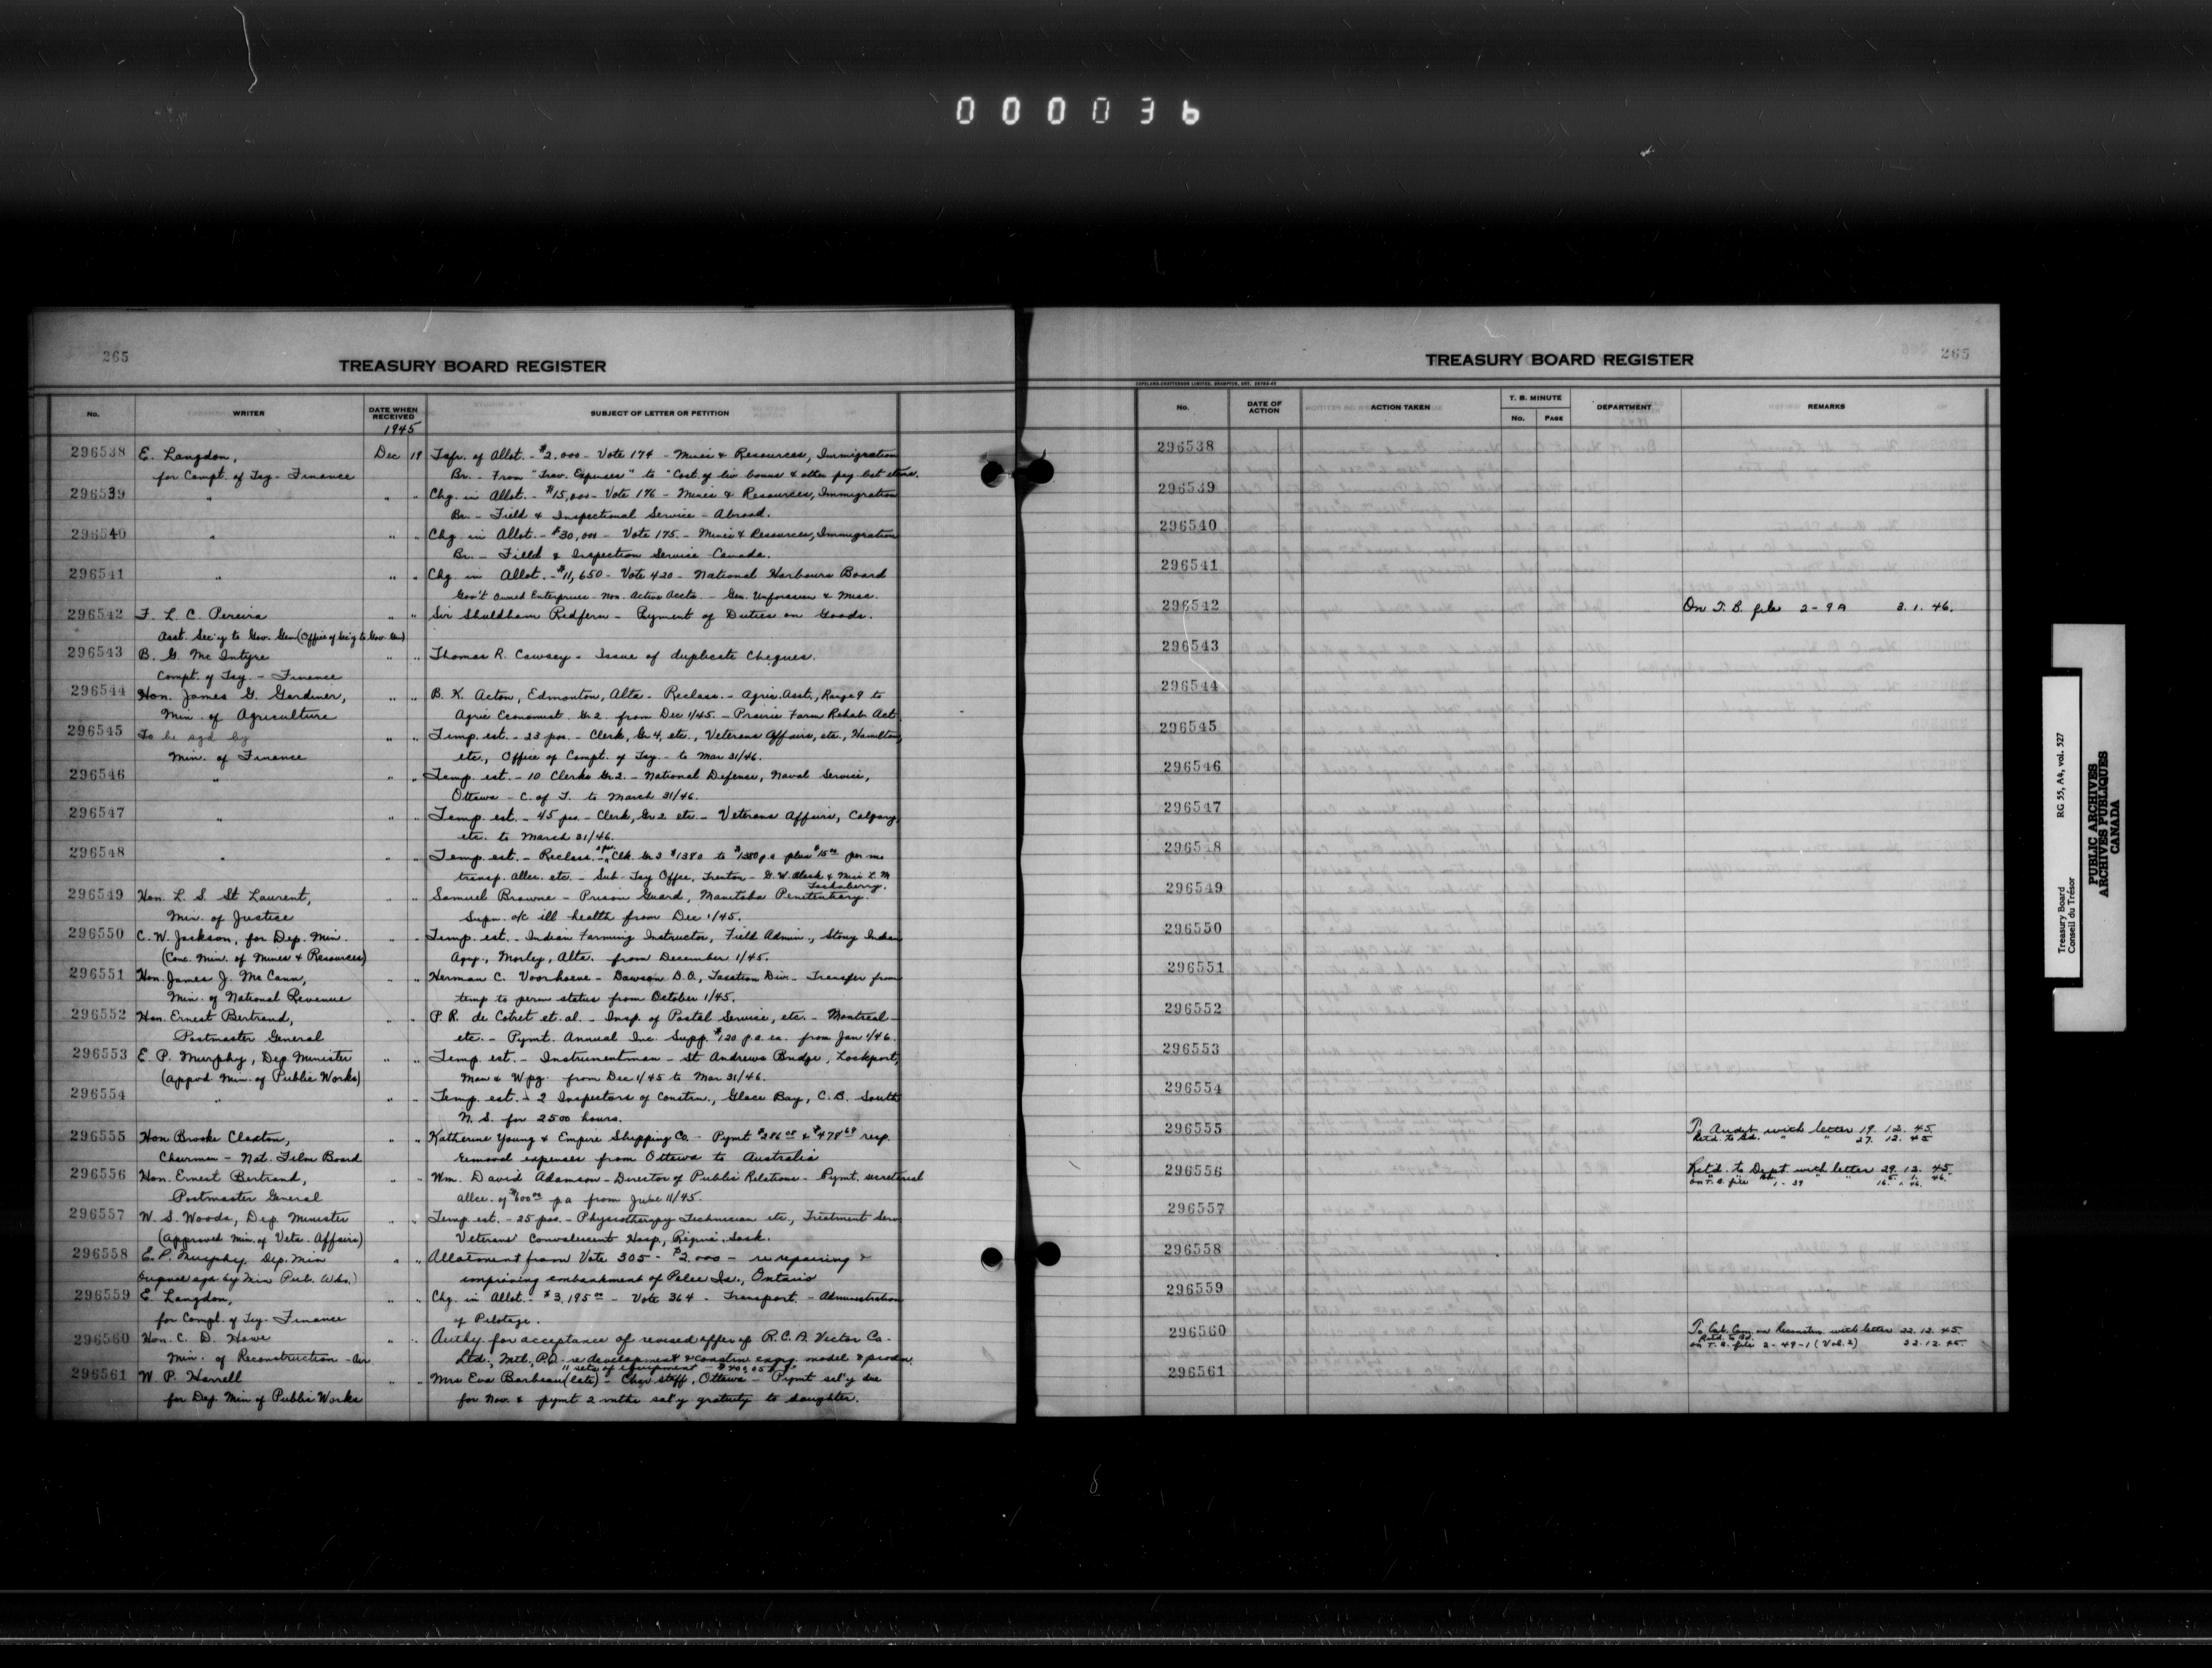 000036
265
TREASURY BOARD REGISTER
No.
WRITER
DATE WHEN RECEIVED
1945
SUBJECT OF LETTER OR PETITION
296538 E. Langdon, Dec 19 Tsfr. of Allot. - $2,000 - Vote 174 - Mines & Resources, Immigration
for Compt. of Tsy - Finance Br. - From "Trav. Expenses" to "Cost of liv bonus & other pay list
296539 " " " Chg. in Allot. - $15,000 - Vote 176 - Mines & Resources, Immigration
Br. - Field & Inspectional Service - Abroad.
296540 " " " Chg. in Allot. - $30,000 - Vote 175 - Mines & Resources, Immigration
Br. - Field & Inspection Service - Canada.
296541 " " " Chg. in Allot. - $11,650 - Vote 420 - National Harbours Board
Gov't Owned Enterprise - Non. Active Accts. - Gen. Unforseen & Misc.
296542 F. L. C. Pereira " " Sir Shuldham Redfern - Payment of Duties on Goods.
Asst. Sec'y to Gov. Gen (Office of Sec'y to Gov. Gen)
296543 B. G. McIntyre " " Thomas R. Cawsey - Issue of duplicate Cheques.
Compt. of Tsy. - Finance
296544 Hon. James G. Gardiner, " " B. K. Acton, Edmonton, Alta - Reclass. - Agric. Asst., Range 9 to
Min. of Agriculture Agric Economist Gr 2 from Dec 1/45. - Prairie Farm Rehab Act
296545 To be sgd by " " Temp. est. - 23 pos. - Clerk, Gr 4, etc., Veterans Affairs, etc., Hamilton,
Min. of Finance etc., Office of Compt. of Tsy. - to Mar 31/46.
296546 " " " Temp. est. - 10 Clerks Gr 2. - National Defense, Naval Service,
Ottawa - C. of T. to March 31/46.
296547 " " " Temp. est. - 45 pos. - Clerk, Gr 2 etc. - Veterans Affairs, Calgary,
etc. to March 31/46.
296548 " " " Temp. est. - Reclass. - Clk Gr 3 $1380 to $1380 p.a plus $15.00 per mo
transp. allce. etc. - Sub-Tsy Office, Trenton - G. W. & Miss L. M
296549 Hon. L. S. St Laurent, " " Samuel Browne - Prison Guard, Manitoba Penitentiary.
Min. of Justice Supn. a/c ill health from Dec 1/45.
296550 C. W. Jackson, for Dep. Min. " " Temp. est. - Indian Farming Instructor, Field Admin., Stony Indian
(Conc. Min. of Mines & Resources) Agcy., Morley, Alta. from December 1/45.
296551 Hon. James J. McCann, " " Herman C. Voorhoeve - Dawson D.O., Taxation Div. - Transfer from
Min. of National Revenue temp to perm status from October 1/45.
296552 Hon. Ernest Bertrand, " " P. R. de Cotret et. al. - Insp. of Postal Service, etc. - Montreal
Postmaster General etc. - Pymt. Annual Inc. Supp. $120 p.a. ea. from Jan 1/46.
296553 E. P. Murphy, Dep. Minister " " Temp. est. - Instrumentman - St Andrews Bridge, Lockport,
(Appvd. Min. of Public Works) Man & Wpg. from Dec 1/45 to Mar 31/46.
296554 " " " Temp. est. - 2 Inspectors of Constrn., Glace Bay, C. B. South
N. S. for 2500 hours.
296555 Hon Brooke Claxton, " " Katherine Young & Empire Shipping Co. - Pymt $286.08 & $478.69 resp.
Chairman - Nat. Film Board Removal expenses from Ottawa to Australia
296556 Hon. Ernest Bertrand, " " Wm. David Adamson - Director of Public Relations - Pymt. secretarial
Postmaster General allce. of $600.00 p a from June 11/45.
296557 W. S. Woods, Dep. Minister " " Temp est. - 25 pos. - Physiotherapy Technician etc., Treatment Serv
(Approved Min. of Vets. Affairs) Veterans' Convalescent Hosp., Regina, Sask.
296558 E. P. Murphy, Dep. Min " " Allotment from Vote 305 - $2,000 - re repairing &
Original sgd by Min Pub. Wks.) improving embankment of Pelee Is., Ontario
296559 E. Langdon, " " Chg. in Allot. - $3,195.00 - Vote 364 - Transport. - Administration
for Compt. of Tsy - Finance of Pilotage.
296560 Hon. C. D. Howe " " Authy. for acceptance of revised offer of R.C.A. Victor Co.
Min. of Reconstruction - Air Ltd., Mtl., P.Q. - re development & constrn engrg. model & prodn.
11 sets of equipment
296561 W. P. Harrell " " Mrs Eva Barbeau (late) - Char staff, Ottawa - Pymt sal'y due
for Dep. Min of Public Works for Nov. & pymt 2 mths sal'y gratuity to daughter.
TREASURY BOARD REGISTER
265
COPELAND-CHATTERSON LIMITED, BRAMPTON, ONT.
No.
DATE OF ACTION
ACTION TAKEN
T. B. MINUTE
No.
PAGE
DEPARTMENT
REMARKS
296538
296539
296540
296541
296542 On T. B. file 2-9A 3. 1. 46.
296543
296544
296545
296546
296547
296548
296549
296550
296551
296552
296553
296554
296555 To Audit with letter 19. 12. 45
Retd. to Bd. " " 27. 12. 45
296556 Ret'd. to Dept. with letter 29. 12. 45
on T. B. file 1-39 16. 1. 46.
296557
296558
296559
296560 To Cab. Com. on Reconstrn with letter 22. 12. 45.
Retd. to Bd.
on T. B. file 2-49-1 (Vol. 2) 22. 12. 45.
296561
Treasury Board RG 55, A4, vol. 527
Conseil du Trésor
PUBLIC ARCHIVES
ARCHIVES PUBLIQUES
CANADA